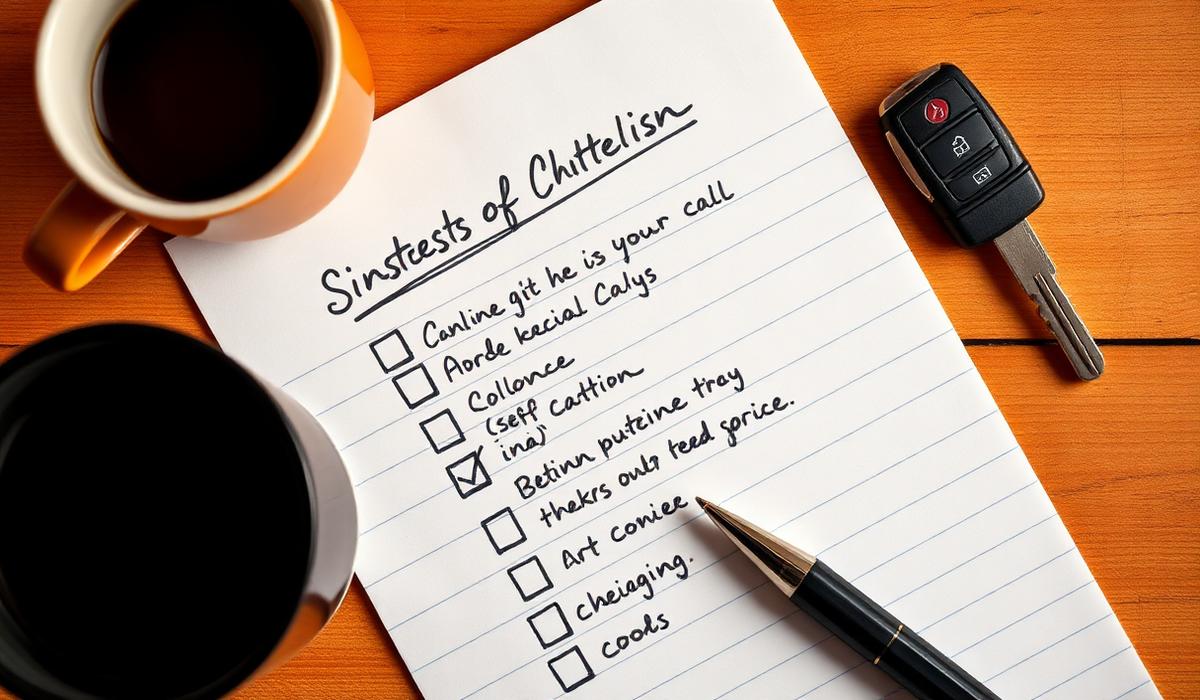 Sinstcests of Chittelisn
Canline git he is your call
Aorde kecial Calys
Collonce
(seff cattion
ina)
Betinn puteine tray
thekrs only teed gorice.
Art coniee
cheiaging.
cools